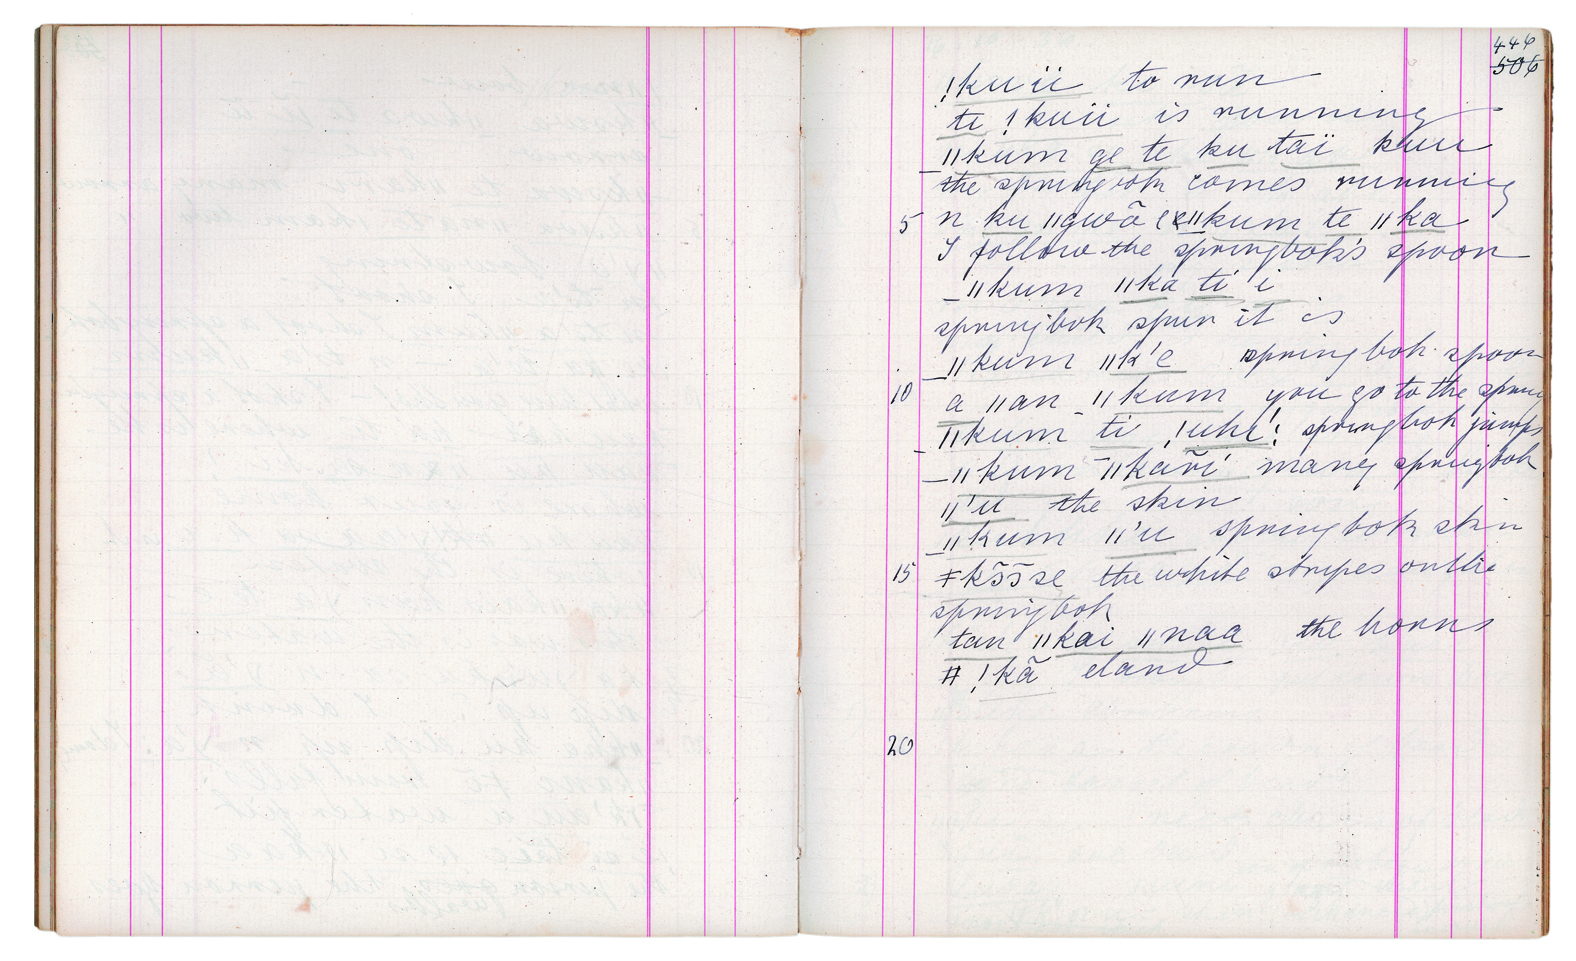 446
506
!kuïï to run
te !kuïï is running
ǁkum ge te ku taï kuu
the springbok comes running
5 n ku ǁgwã ǁkum te ǁka
I follow the springbok's spoor
ǁkum ǁka ti i
springbok spur it is
ǁkum ǁk'e springbok spoor
10 a ǁan ǁkum you go to the spring
ǁkum ti !uhe! springbok jumps
ǁkum ǁkar̃i many springbok
ǁ'u the skin
ǁkum ǁ'u springbok skin
15 ǂkõõse the white stripes on the
springbok
tan ǁkai ǁnaa the horns
!kã eland
20